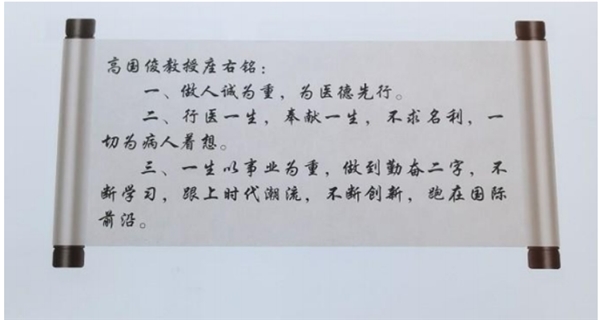 高国俊教授座右铭：
一、做人诚为重，为医德先行。
二、行医一生，奉献一生，不求名利，一
切为病人着想。
三、一生以事业为重，做到勤奋二字，不
断学习，跟上时代潮流，不断创新，跑在国际
前沿。